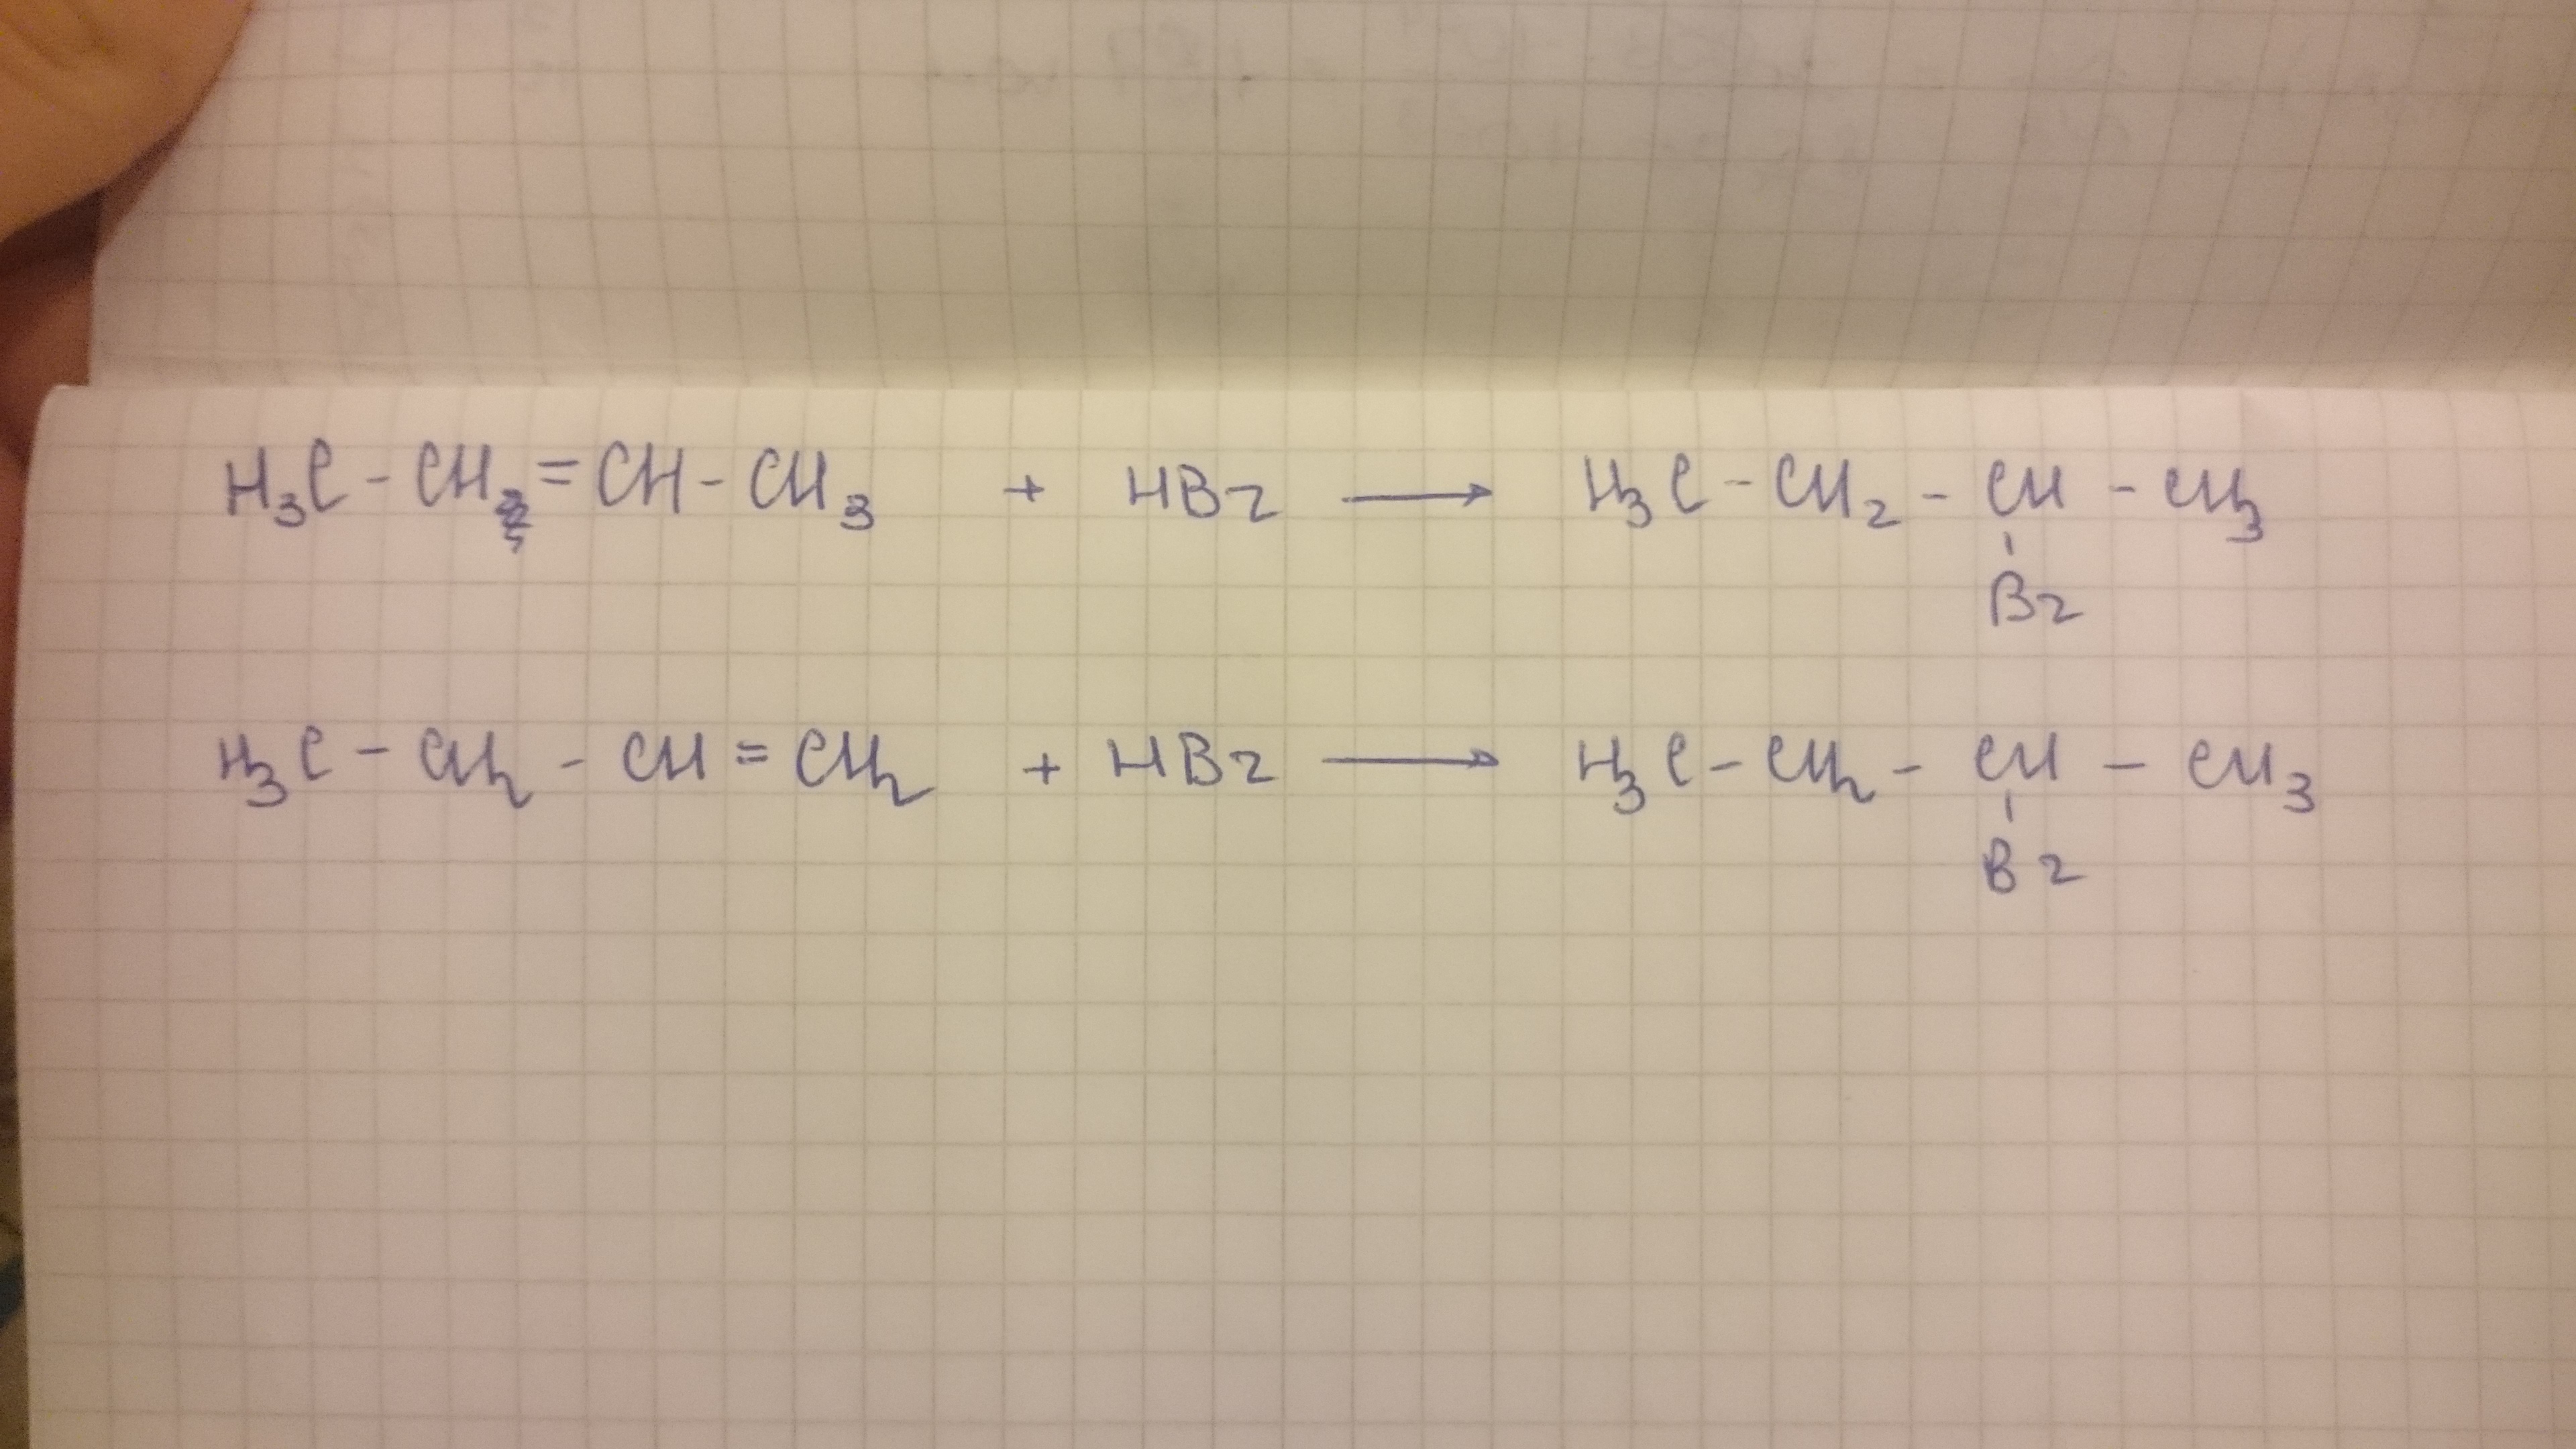 H₃C - CH = CH - CH₃ + HBr ⟶ H₃C - CH₂ - CH - CH₃
Br
H₃C - CH₂ - CH = CH₂ + HBr ⟶ H₃C - CH₂ - CH - CH₃
Br